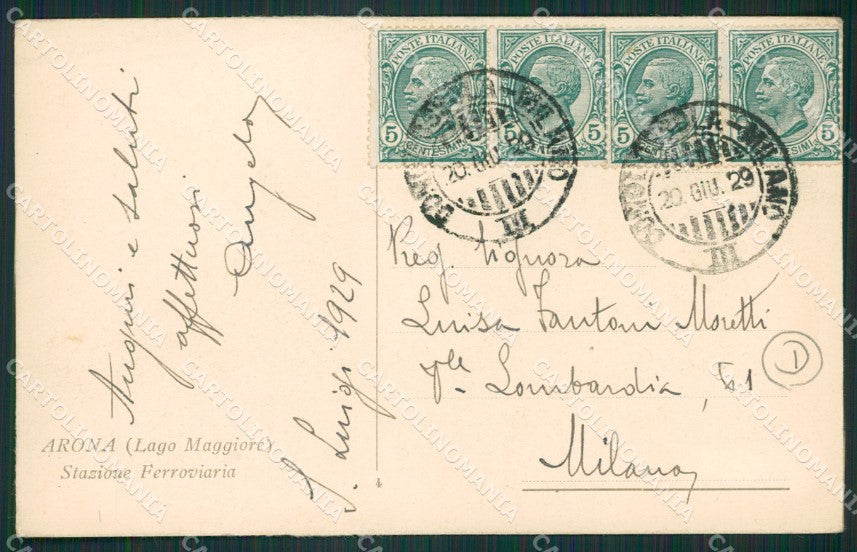 POSTE ITALIANE POSTE ITALIANE POSTE ITALIANE POSTE ITALIANE
5 CENTESIMI 5 5 CENTESIMI 5 5 CENTESIMI 5 5 CENTESIMI 5
MILANO
20. GIU. 29
III
MILANO
20. GIU. 29
III
Auguri e saluti
affettuosi
Angelo
S. Luigi 1929
ARONA (Lago Maggiore)
Stazione Ferroviaria
4
Preg. Signora
Luisa Fantoni Moretti
Vle Lombardia, 51
Milano
D
CARTOLINOMANIA